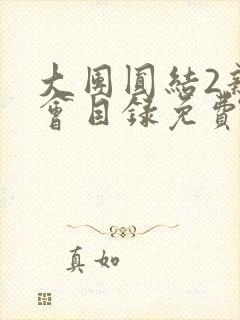 大团圆结2新
会目録免费
真如